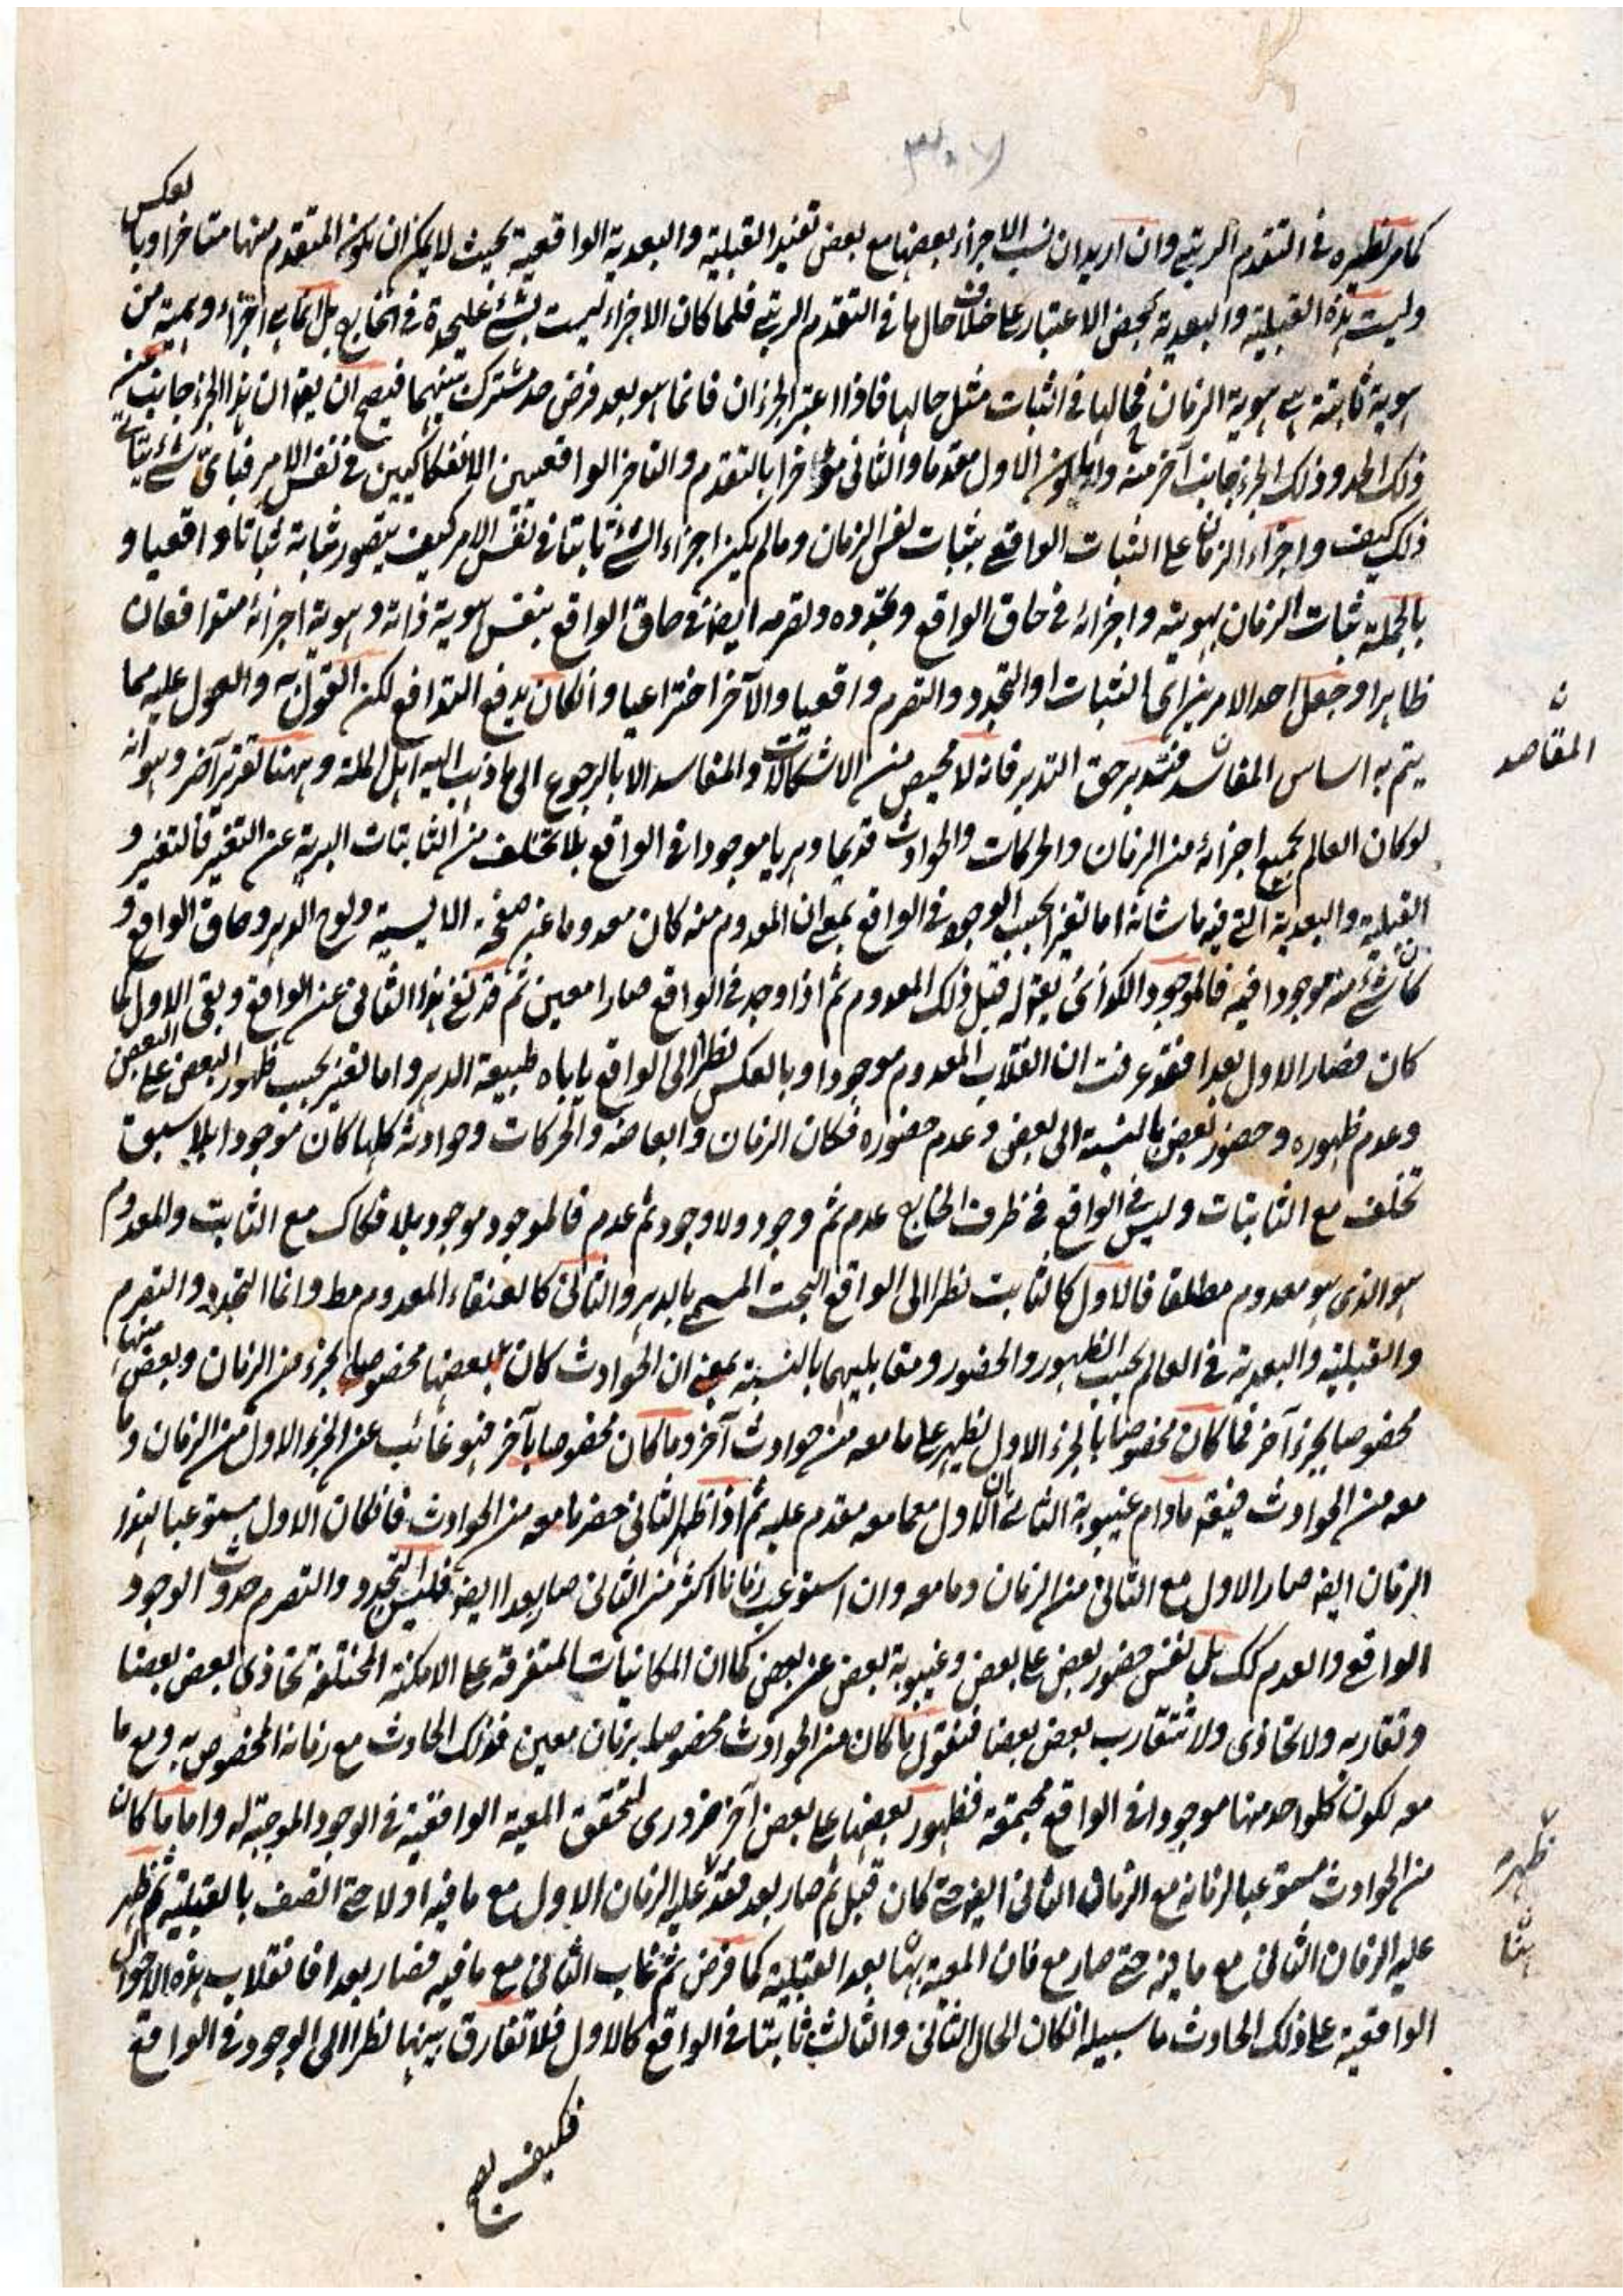 كما مر نظيره في التقدم الرتبي وان اريد ان نسب الاجزاء بعضها مع بعض تفيد القبلية والبعدية الواقعية بحيث لا يمكن ان يكون المتقدم منها متاخرا وبالعكس
وليست هذه القبلية والبعدية بمحض الاعتبار على خلاف حالها في التقدم الرتبي فلما كان الاجزاء ليست بشئ عليحدة في الخارج بل انما هي اجزاء وهمية من
هوية ثابتة هي هوية الزمان فحالها في الثبات مثل حالها فاذا اعتبر الجزءان فانما هو بعد فرض حد مشترك بينهما فيصح ان يقال ان هذا الجزء جانب منه
ذلك الحد وذلك الجزء جانب آخر منه واما كون الاول مقدما والثاني مؤخرا بالتقدم والتاخر الواقعيين الانفكاكيين في نفس الامر فباى شئ يتاتى
ذلك كيف واجزاء الزمان على الثبات الواقعي بثبات نفس الزمان وما لم يكن اجزاء الشئ ثابتا في نفس الامر كيف يتصور ثباته ثباتا واقعيا و
بالجملة ثبات الزمان بهويته واجزائه في حاق الواقع وتجدده وتصرمه ايضا في حاق الواقع بنفس هوية ذاته وهوية اجزائه متدافعان
ظاهرا وجعل احد الامرين اى الثبات او التجدد والتصرم واقعيا والآخر اختراعيا وان كان يدفع التدافع لكن القول به والعول عليه مما
يتم به اساس المفاسد فتدبر حق التدبر فانه لا محيص من الاشكالات والمفاسد الا بالرجوع الى ما ذهب اليه اهل الملة وههنا تقرير آخر وهو انه
المقاصد
لو كان العالم بجميع اجزائه من الزمان والحركات والحوادث قديما دهريا موجودا في الواقع بلا تخلف من الثابتات البرية عن التغير فالتغير و
القبلية والبعدية التي فيه ما شانه اما تغير بحسب الوجود في الواقع بمعنى ان المعدوم منه كان معدوما عن صفحة الايسية ولوح الدهر وحاق الواقع و
كان شئ منه موجودا فيه فالموجود الكذائي يقال له قبل ذلك المعدوم ثم اذا وجد في الواقع صارا معين ثم قد تغير هذا الثاني عن الواقع وبقى الاول كما
كان فصار الاول بعدا فقد عرفت ان انقلاب المعدوم موجودا وبالعكس نظرا الى الواقع ياباه طبيعة الدهر واما تغير بحسب ظهور البعض على البعض
وعدم ظهوره وحضور بعض بالنسبة الى بعض وعدم حضوره فكان الزمان وابعاضه والحركات وحوادثه كلها كان موجودا بلا سبق
تخلف مع الثابتات وليس في الواقع في ظرف الخارج عدم ثم وجود ولا وجود ثم عدم فالموجود موجود بلا فكاك مع الثابت والمعدوم
هو الذي هو معدوم مطلقا فالاول كالثابت نظرا الى الواقع البحت المسمى بالدهر والثاني كالعنقاء المعدوم مط وانما التجدد والتصرم
والقبلية والبعدية في العالم بحسب الظهور والحضور ومقابليهما بالنسبة بمعنى ان الحوادث كان بعضها مخصوصا بجزء من الزمان وبعض منها
مخصوصا بجزء آخر فما كان مخصوصا بالجزء الاول يظهر على ما معه من حوادث آخر وما كان مخصوصا بآخر فهو غائب عن الجزء الاول من الزمان وما
معه من الحوادث فيقال ما دام غيبوبة الثاني بان الاول مما معه مقدم عليه ثم اذا ظهر الثاني حضر ما معه من الحوادث فان كان الاول مستوعبا لهذا
الزمان ايضا صار الاول مع الثاني من الزمان وما معه وان استوعب زمانا اكثر من الثاني صار بعدا ايضا فليس التجدد والتصرم حدوث الوجود
الواقع والعدم كك بل نفس حضور بعض على بعض وغيبوبة بعض عن بعض كما ان المكانيات المتفرقة على الامكنة المختلفة تحاذى بعض بعضا
وتقاربه ولا تحاذى ولا تتقارب بعض بعضا فنقول ما كان من الحوادث مخصوصا بزمان معين فذلك الحادث مع زمانه المخصوص به ومع ما
معه لكون كلواحد منها موجودا في الواقع مجتمعة فظهور بعضها على بعض آخر ضروري لتحقق المعية الواقعية في الوجود الموجبة له واما ما كان
من الحوادث مستوعبا لزمانه مع الزمان الثاني ايضا حتى كان قبل ثم صار بعد فقد ظهر عليه الزمان الاول مع ما فيه اولا حتى اتصف بالقبلية ثم ظهر
ظهر
عليه الزمان الثاني مع ما فيه حتى صار مع فان المعية ههنا بعد القبلية كما فرض ثم غاب الثاني مع ما فيه فصار بعدا فانقلاب هذه الاحوال
الواقعية على ذلك الحادث ما سبيله ان كان الحال الثاني والثالث ثابتا في الواقع كالاول فلا تفارق بينها نظرا الى الوجود في الواقع
فكيف